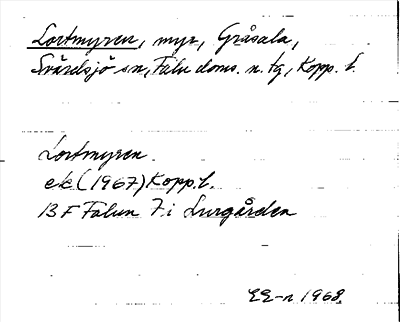 Lortmyren, myr, Gråsala,
Svärdsjö sn, Falu doms. n. tg, Kopp. l.
Lortmyren.
ek (1967) Kopp. l.
13 F Falun 7 i Lurgården
EE-n 1968